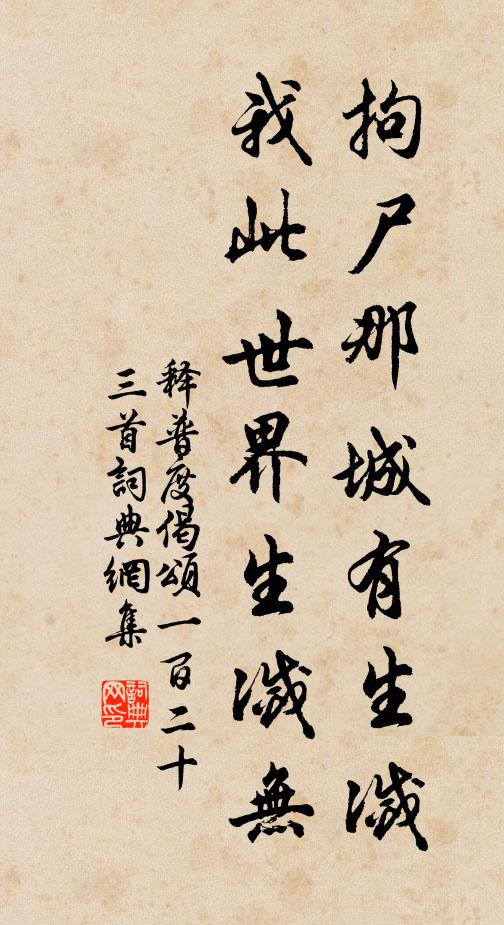 拘尸那城有生滅
我此世界生滅無
释普度偈頌一百二十
三首詞典網集
詞典网印